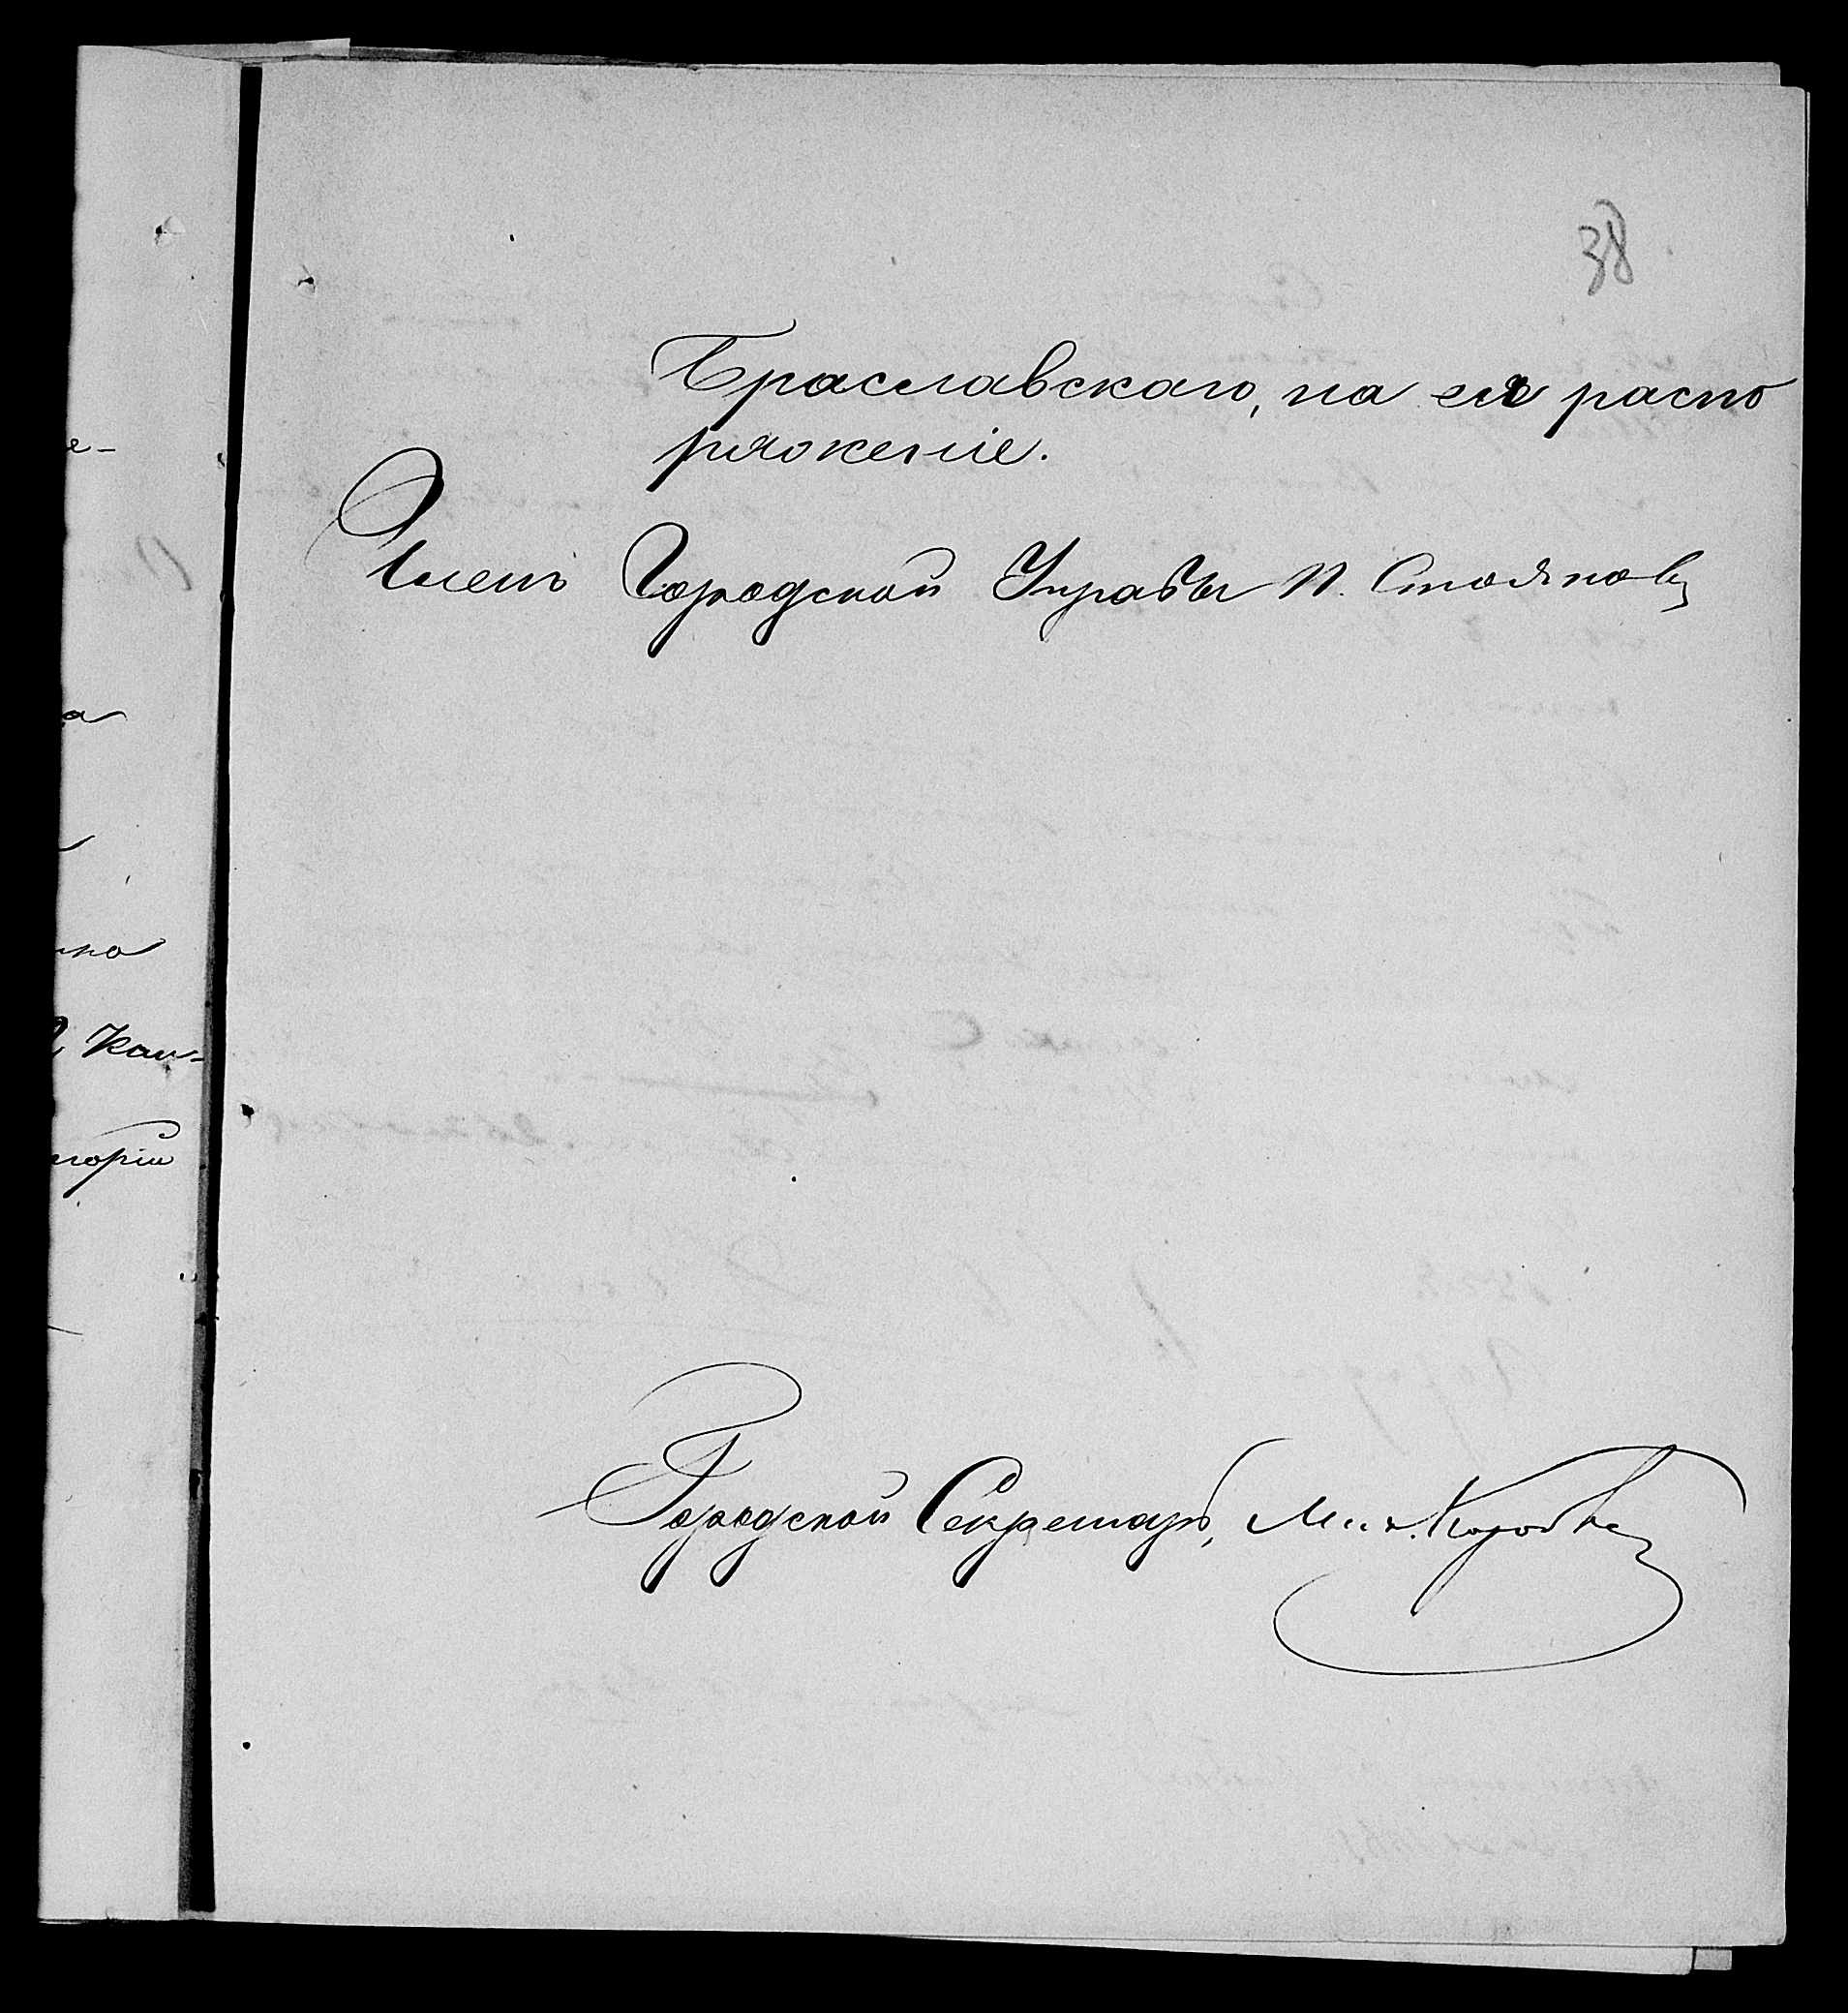 38
Браславскаго, на ея распо
ряженіе.
Членъ Городской Управы П. Стояновъ
Городской Секретарь,
а
Кан-
торіи